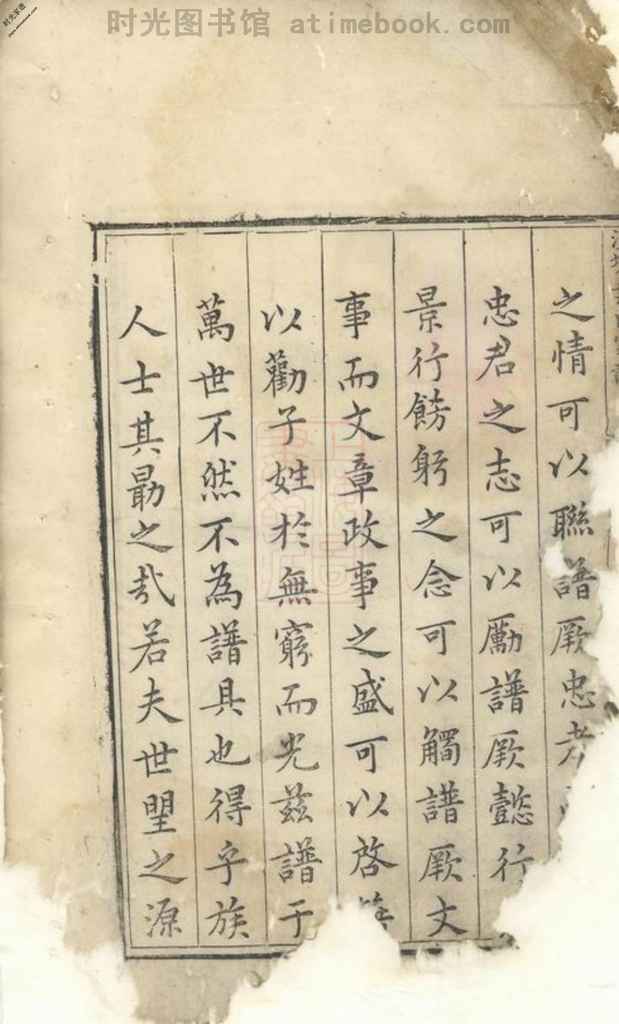 时光图书馆 atimebook.com
之情可以聯譜厥忠孝
忠君之志可以勵譜厥懿行
景行餝躬之念可以觸譜厥文
事而文章政事之盛可以啓
以勸子姓於無窮而光茲譜于
萬世不然不為譜具也得乎族
人士其勗之哉若夫世朢之源